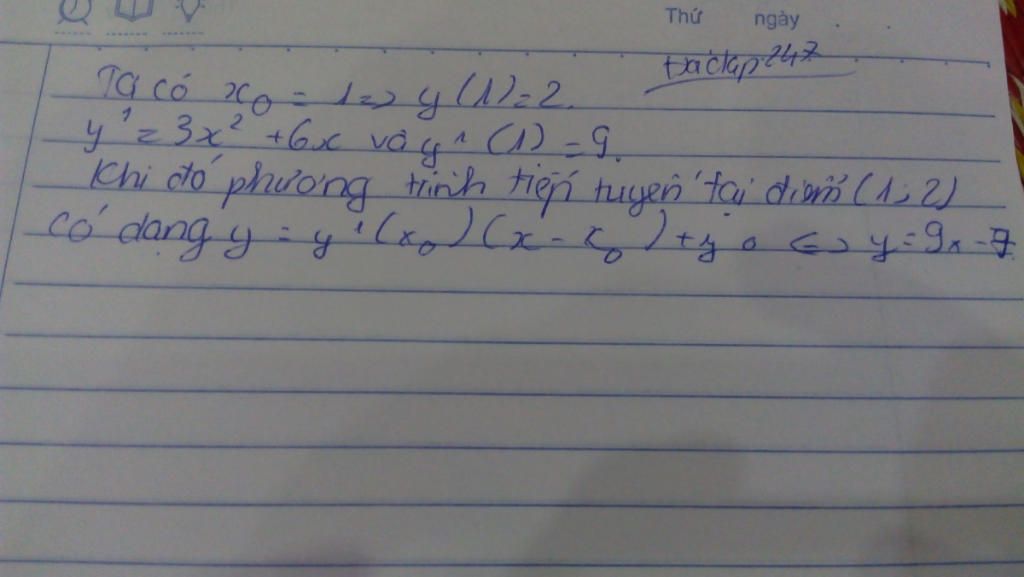 Thứ ngày . .
Ta có x₀ = 1 => y(1) = 2.
y' = 3x² + 6x và y'(1) = 9.
Khi đó phương trình tiếp tuyến tại điểm (1; 2)
có dạng y = y'(x₀)(x - x₀) + y₀ <=> y = 9x - 7